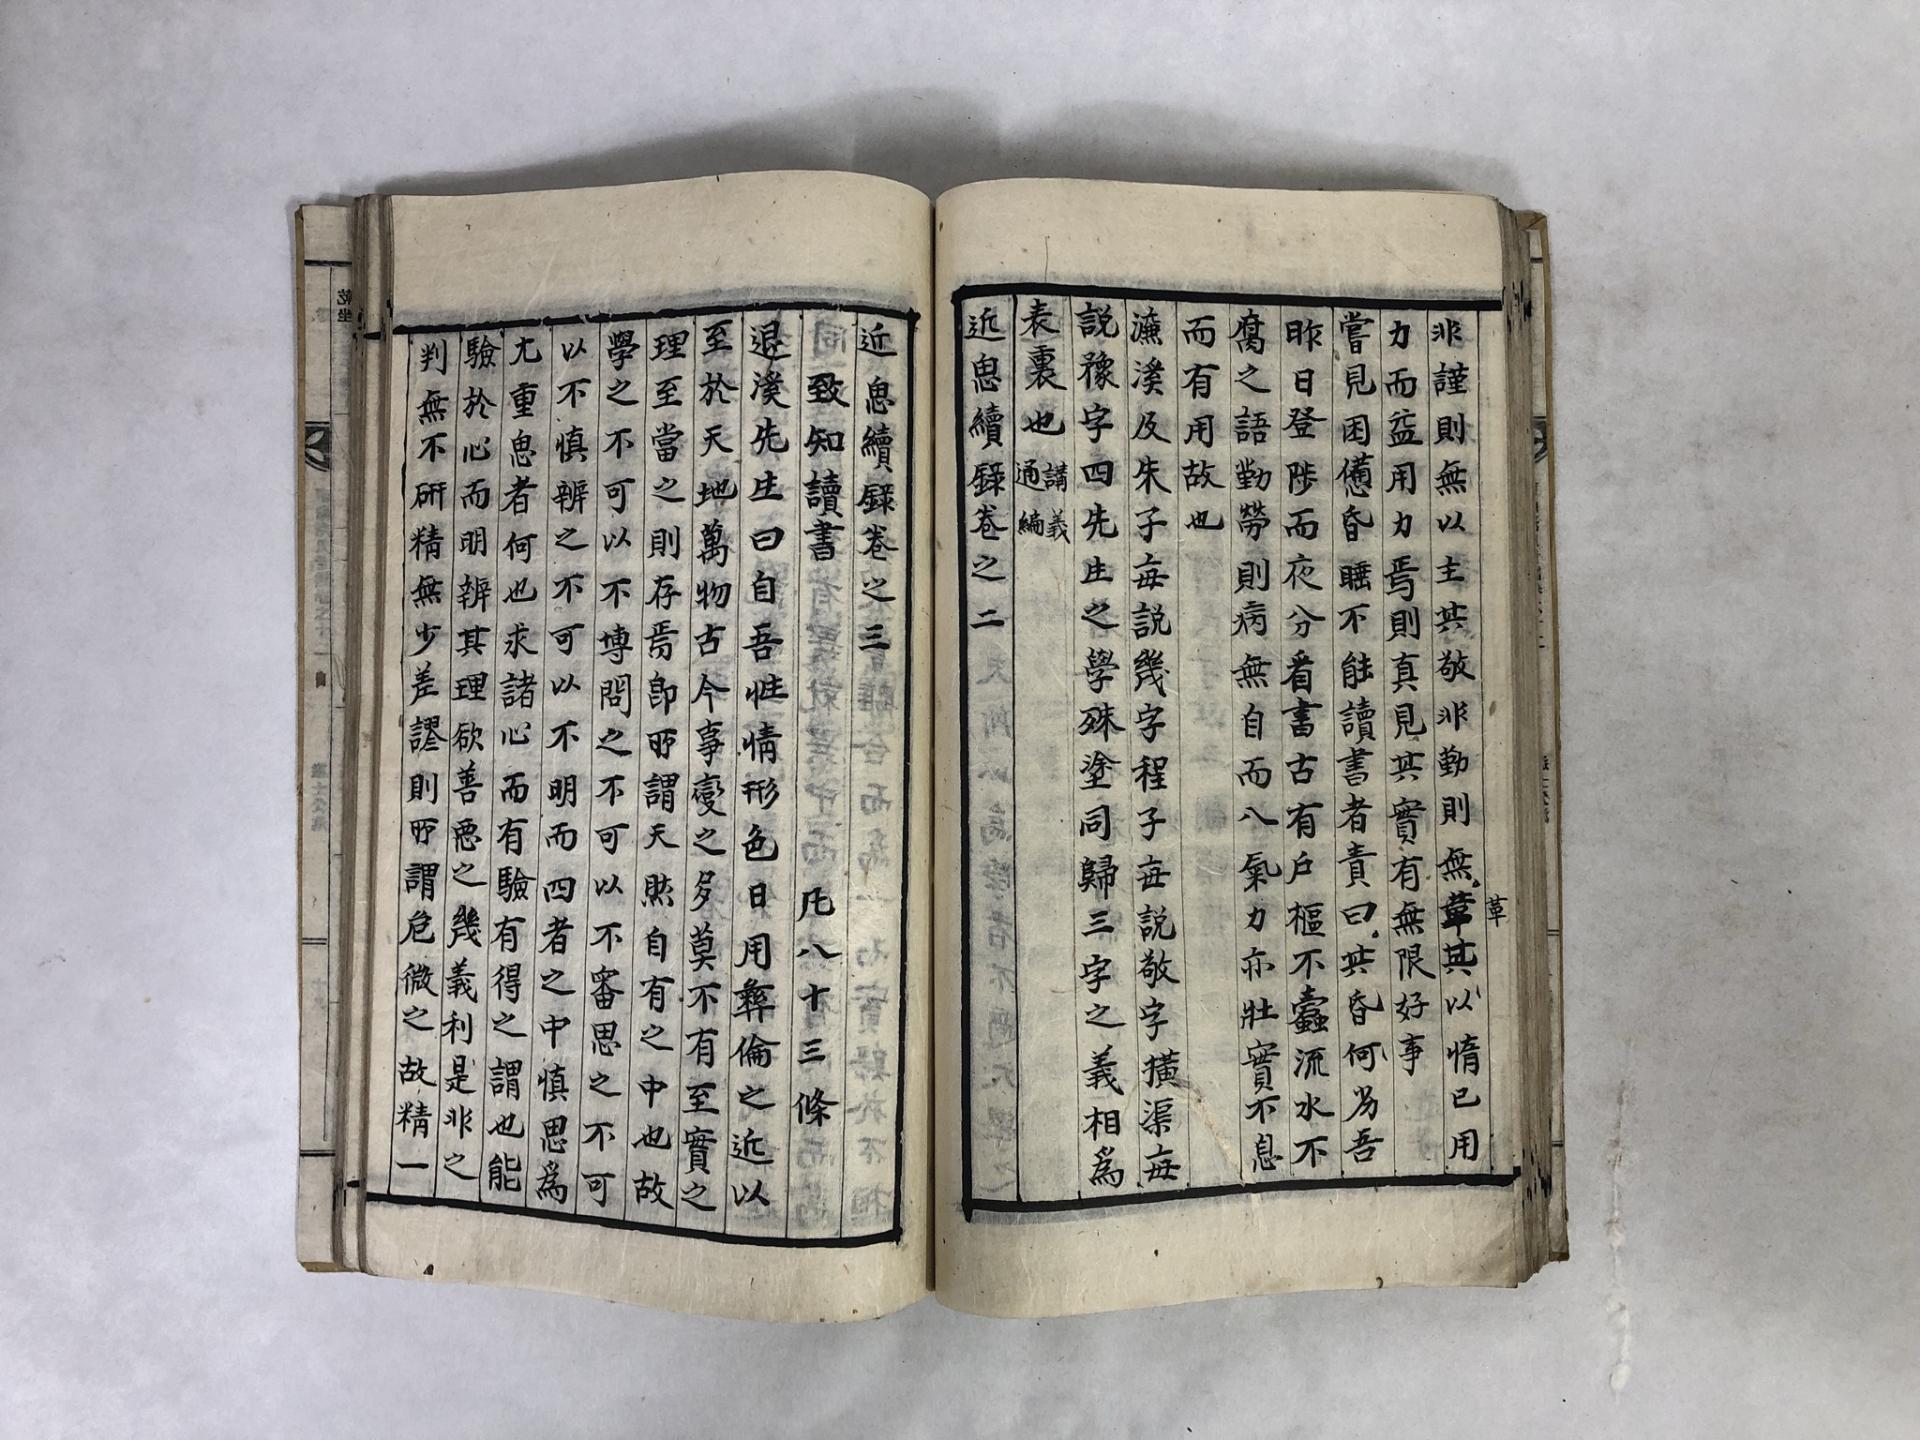 非謹則無以主其敬非勤則無章其以惰已用
革
力而益用力焉則真見其實有無限好事
嘗見困憊昏睡不能讀書者責曰其昏何為吾
昨日登陟而夜分看書古有戶樞不蠹流水不
腐之語勤勞則病無自而入氣力亦壯實不息
而有用故也
濂溪及朱子每說幾字程子每說敬字橫渠每
說豫字四先生之學殊塗同歸三字之義相為
表裏也 講義通編
近思續錄卷之二
近思續錄卷之三
致知讀書 凡八十三條
退溪先生曰自吾性情形色日用彝倫之近以
至於天地萬物古今事變之多莫不有至實之
理至當之則存焉卽所謂天然自有之中也故
學之不可以不博問之不可以不審思之不可
以不慎辨之不可以不明而四者之中慎思為
尤重思者何也求諸心而有驗有得之謂也能
驗於心而明辨其理欲善惡之幾義利是非之
判無不研精無少差謬則所謂危微之故精一